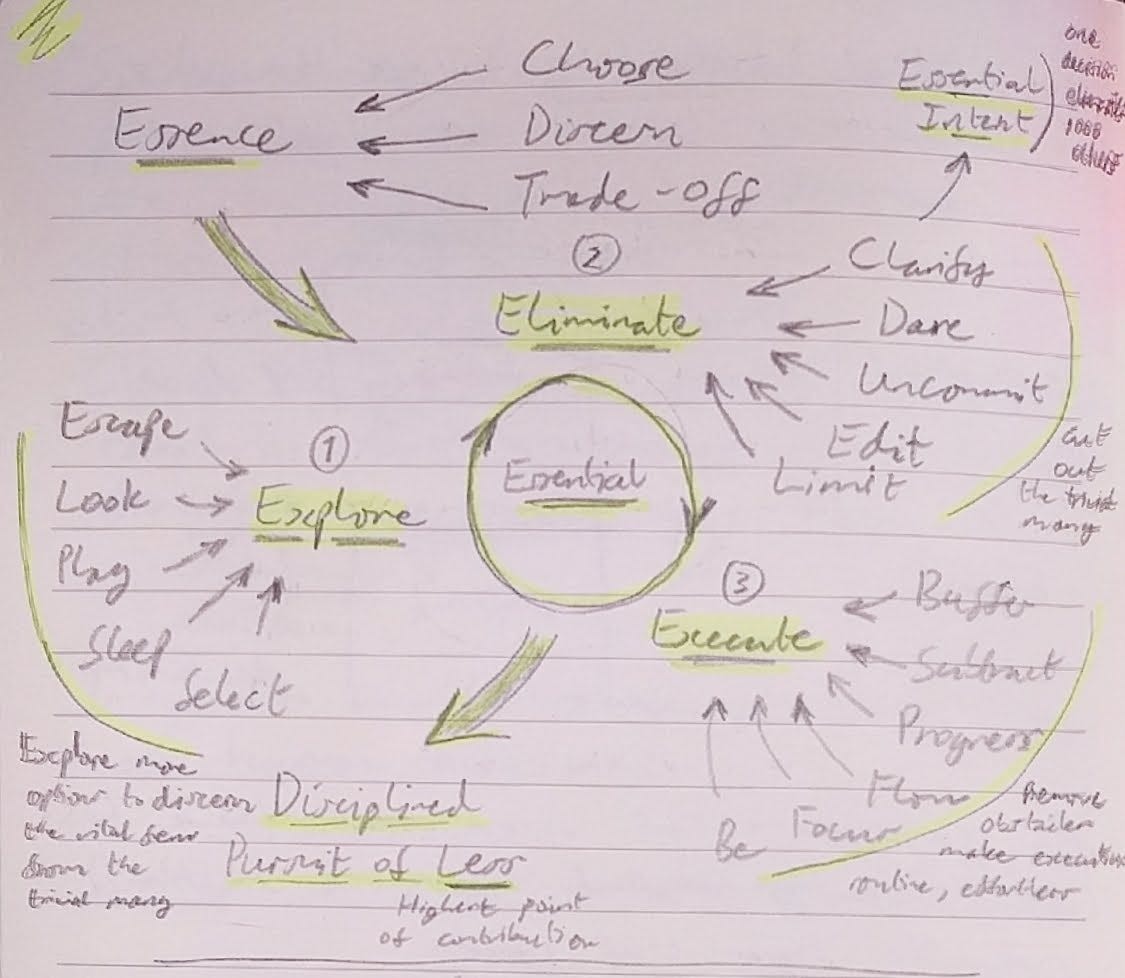 Choose
Essence
Discern
Trade-off
Essential
Intent
one
decision
eliminates
1000
others
②
Eliminate
Clarify
Dare
Uncommit
Edit
Limit
cut
out
the trivial
many
Essential
Escape
Look
Play
Sleep
Select
①
Explore
Explore more
options to discern
the vital few
from the
trivial many
③
Execute
Buffer
Subtract
Progress
Flow
Focus
Be
Remove
obstacles
make execution
routine, effortless
Disciplined
Pursuit of Less
Highest point
of contribution